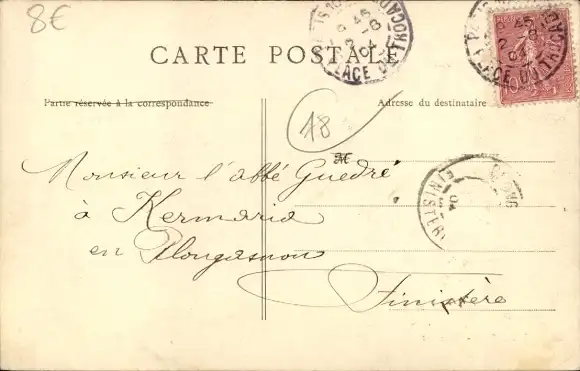 8€
CARTE POSTALE
Partie réservée à la correspondance
Adresse du destinataire
18
Monsieur l'abbé Guedré
à Kermaria
en Plougasnou
Finistère
PLACE DU TROCADÉRO
PLACE DU TROCADÉRO
10
FINISTÈRE